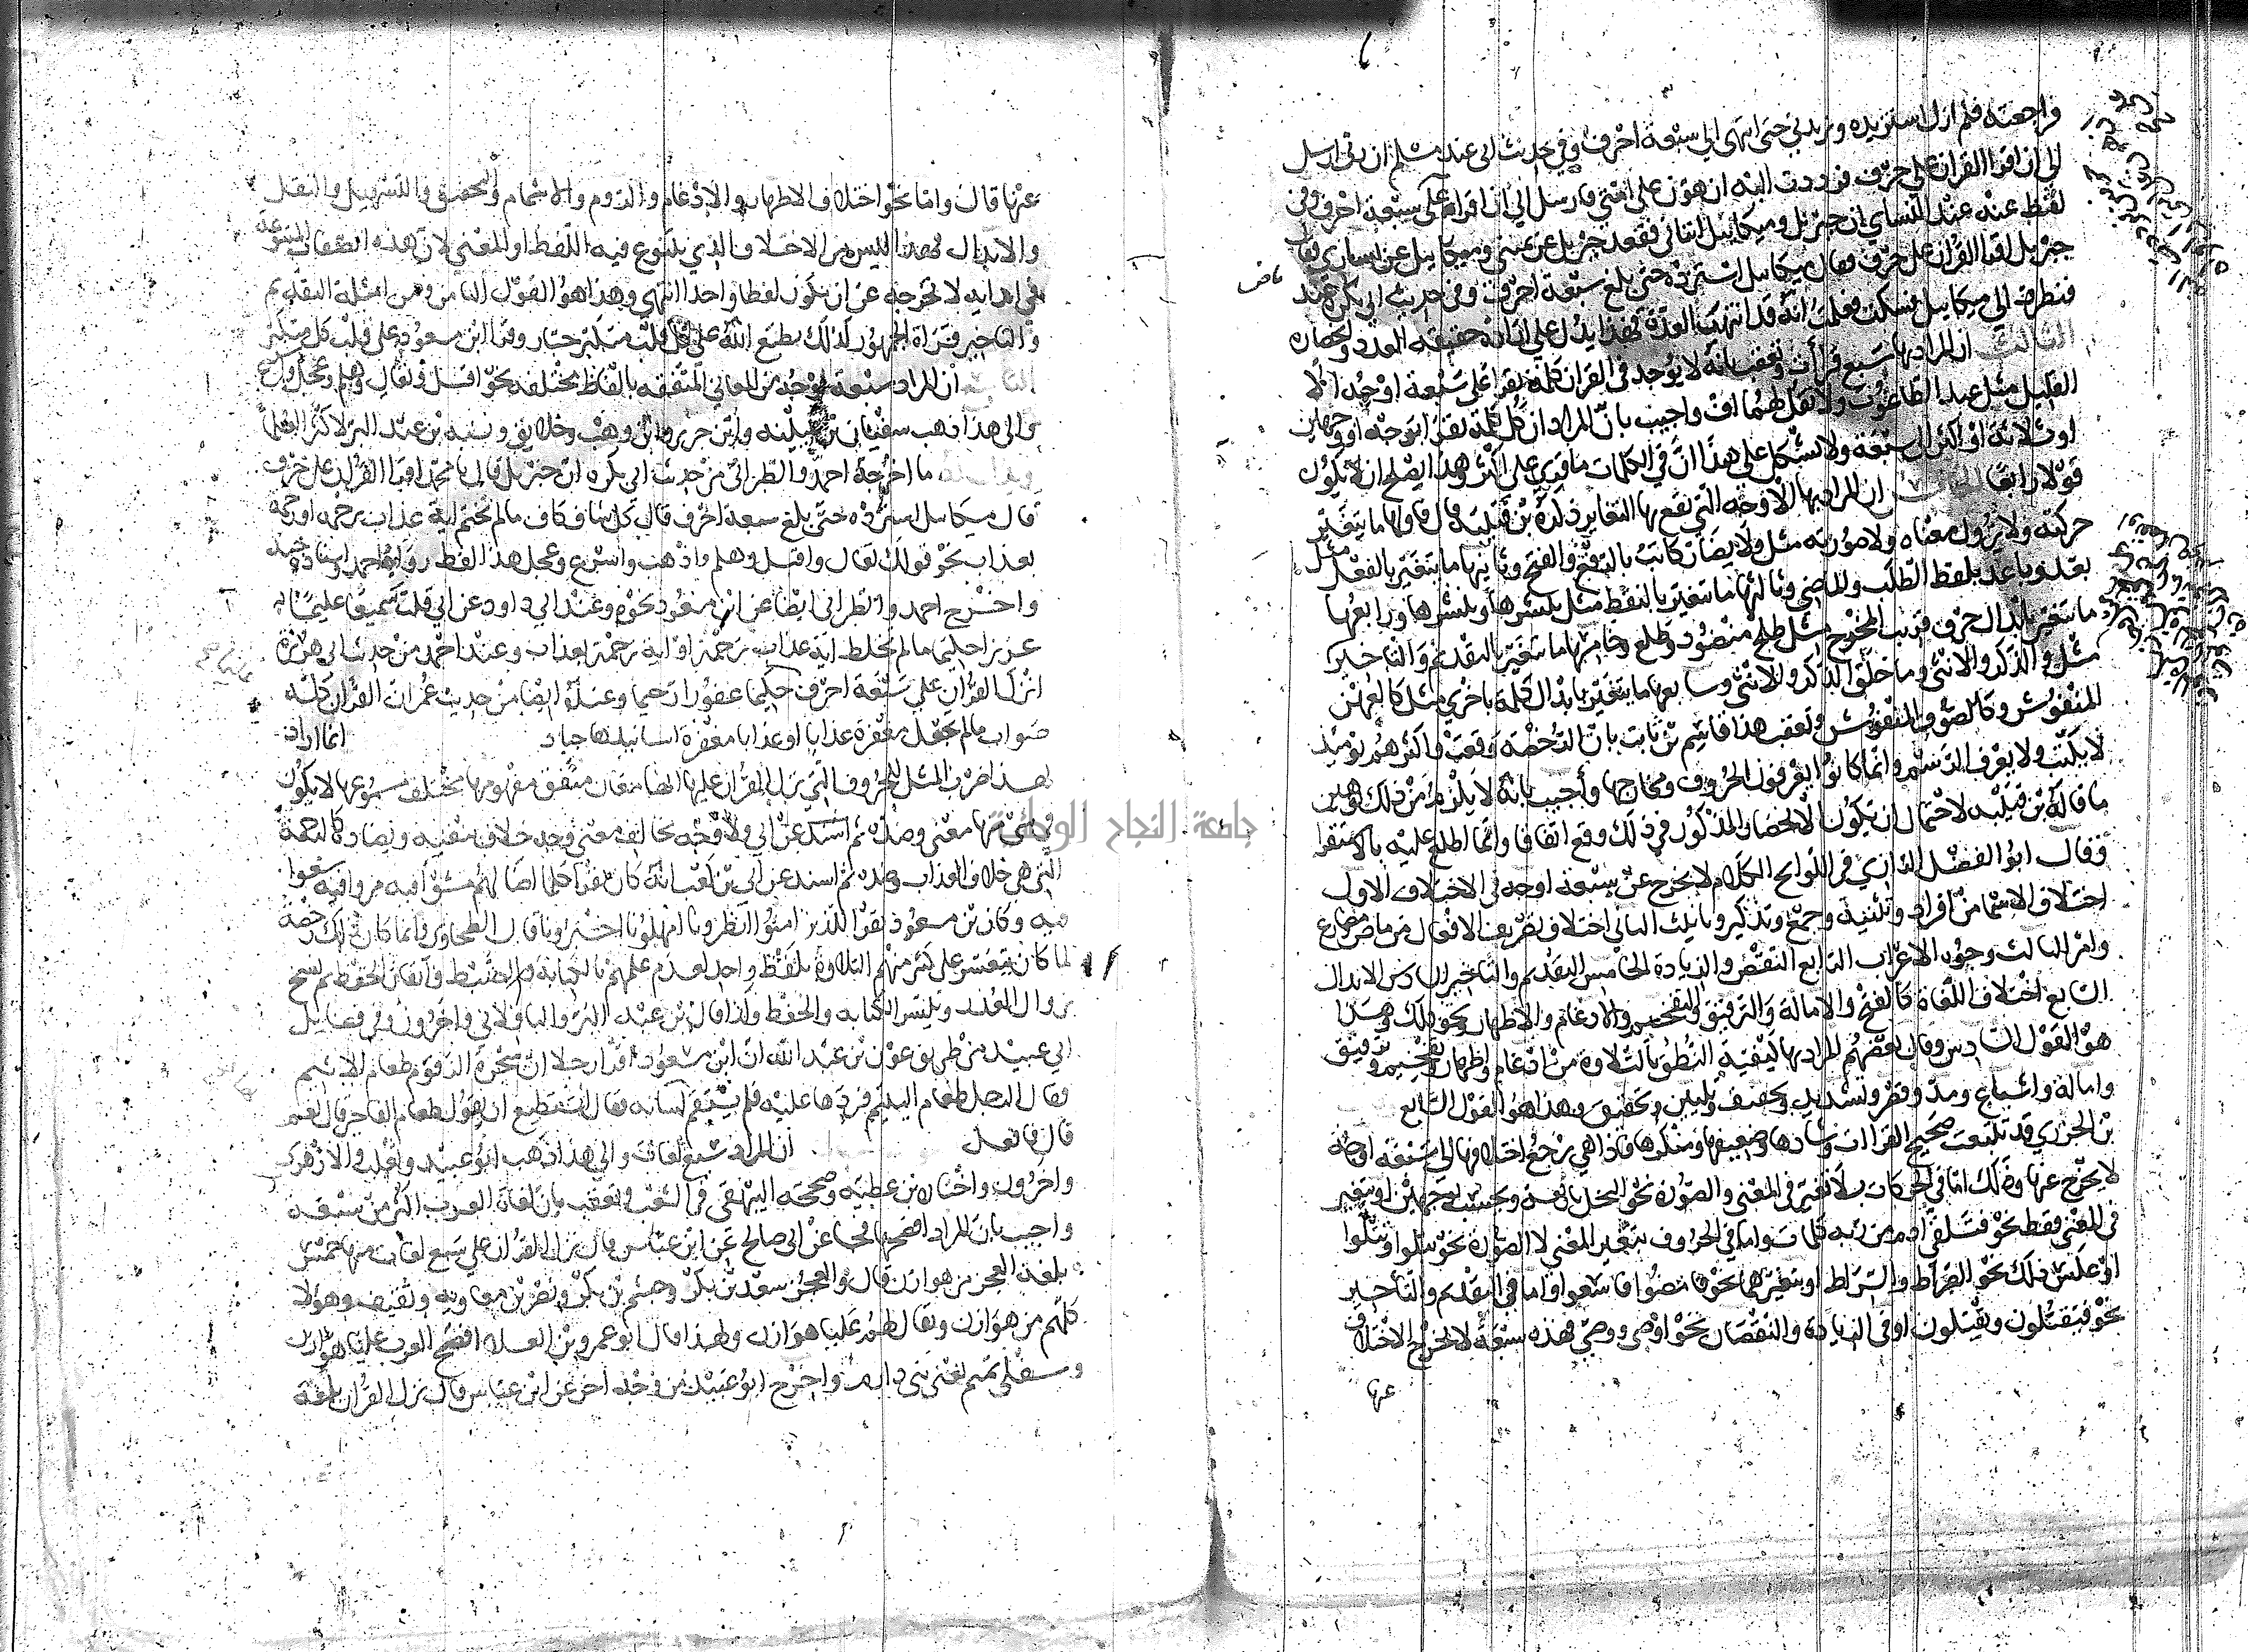 فراجعته فلم ازل استزيده ويزيدني حتى انتهى الى سبعة احرف وفي حديث ابي عند مسلم ان ربي ارسل
الى ان اقرا القران على حرف فرددت اليه ان هون على امتي فارسل الي ان اقراه على سبعة احرف وفي
لفظ عنه عند النساي ان جبريل وميكاييل اتياني فقعد جبريل عن يميني وميكاييل عن يساري فقال
جبريل اقرا القران على حرف وقال ميكاييل استزده حتى بلغ سبعة احرف وفي حديث ابي بكرة عند
فنظرت الى ميكاييل فسكت فعلمت انه قد انتهت العدة فهذا يدل على ارادة حقيقة العدد وانحصاره
الثالث ان المراد بها سبع قراات وتعقب بانه لا يوجد في القران كلمة تقرا على سبعة اوجه الا
القليل مثل عبد الطاغوت ولا تقل لهما اف واجيب بان المراد ان كل كلمة تقرا بوجه او وجهين
او ثلاثة او اكثر الى سبعة ولا يشكل على هذا ان في الكلمات ما قري على اكثر وهذا يصلح ان يكون
قولا رابعا الخامس ان المراد بها الاوجه التي يقع بها التغاير ذكره بن قتيبة قال فاولها ما يتغير
حركته ولا يزول معناه ولا صورته مثل ولا يضار كاتب بالرفع والفتح وثانيها ما يتغير بالفعل مثل
بعد وباعد بلفظ الطلب والماضي وثالثها ما يتغير بالنقط مثل ننشرها وننشزها ورابعها
ما يتغير بابدال حرف قريب المخرج مثل طلح منضود وطلع وخامسها ما يتغير بالتقديم والتاخير
مثل والذكر والانثى وما خلق الذكر والانثى وسابعها ما يتغير بابدال كلمة باخرى مثل كالعهن
المنفوش وكالصوف المنفوش وتعقب هذا قاسم بن ثابت بان الرخصة وقعت واكثرهم يومئذ
لا يكتب ولا يعرف الرسم وانما كانوا يعرفون الحروف ومخارجها وأجيب بانه لا يلزم من ذلك توهين
ما قاله بن قتيبه لاحتمال ان يكون الانحصار المذكور في ذلك وقع اتفاقا وانما اطلع عليه بالاستقرا
وقال ابو الفضل الرازي في اللوايح الكلام لا يخرج عن سبعة اوجه في الاختلاف الاول
اختلاف الاسما من افراد وتثنية وجمع وتذكير وتانيث الثاني اختلاف تصريف الافعال من ماض ومضارع
وامر الثالث وجوه الاعراب الرابع النقص والزيادة الخامس التقديم والتاخير السادس الابدال
السابع اختلاف اللغات كالفتح والامالة والترقيق والتفخيم والادغام والاظهار ونحو ذلك وهذا
هو القول السادس وقال بعضهم المراد بها كيفية النطق بالتلاوة من ادغام واظهار وتفخيم وترقيق
وامالة واشباع ومد وقصر وتشديد وتخفيف وتليين وتحقيق وهذا هو القول السابع
بن الجزري قد تتبعت صحيح القراات وشاذها وضعيفها ومنكرها فاذا هي يرجع اختلافها الى سبعة اوجه
لا يخرج عنها وذلك اما في الحركات بلا تغير في المعنى والصورة نحو البخل باربعة ويحسب بوجهين او بتغير
في المعنى فقط نحو فتلقى ادم من ربه كلمات واما في الحروف بتغير المعنى لا الصورة نحو تبلوا وتتلوا
او عكس ذلك نحو الصراط والسراط او بتغيرهما نحو فامضوا فاسعوا واما في التقديم والتاخير
نحو فيقتلون ويقتلون او في الزيادة والنقصان نحو اوصى ووصى فهذه سبعة لا يخرج الاختلاف
عنها
عنها قال واما نحو اختلاف الاظهار والادغام والروم والاشمام والتحقيق والتسهيل والنقل
والابدال فهذا ليس من الاختلاف الذي يتنوع فيه اللفظ او المعنى لان هذه الصفات المتنوعة
في ادايه لا تخرجه عن ان يكون لفظا واحدا انتهى وهذا هو القول الثامن ومن امثلة التقديم
والتاخير قراة الجمهور كذلك يطبع الله على كل قلب متكبر جبار وقرا ابن مسعود على قلب كل متكبر
التاسع ان المراد سبعة اوجه من المعاني المتفقه بالفاظ مختلفه نحو اقبل وتعال وهلم وعجل واسرع
والى هذا ذهب سفيان بن عيينه وابن جرير وابن وهب وخلايق ونسبه بن عبد البر لاكثر العلما
ما اخرجه احمد والطبراني من حديث ابي بكره ان جبريل قال يا محمد اقرا القران على حرف
قال ميكاييل استزده حتى بلغ سبعة احرف قال كل شاف كاف ما لم تختم اية عذاب برحمه او رحمه
بعذاب نحو قولك تعال واقبل وهلم واذهب واسرع وعجل هذا اللفظ رواية احمد واسناده جيد
واخرج احمد والطبراني ايضا عن ابن مسعود نحوه وعند ابي داود عن ابي قلت سميعا عليما
عزيزا حكيما ما لم تخلط اية عذاب برحمة او اية رحمة بعذاب وعند احمد من حديث ابي هريرة
انزل القران على سبعة احرف حكيما غفورا رحيما وعنده ايضا من حديث عمر ان القران كله
صواب ما لم تجعل مغفرة عذابا او عذابا مغفرة اسانيدها جياد انما اراد
بهذا ضرب المثل للحروف التي نزل القران عليها انها معان متفق مفهومها مختلف مسموعها لا يكون
في شي منها معنى وضده ثم اسند عن ابي ولا وجه يخالف معنى وجه خلافا ينفيه ويضاده كالرحمة
التي هي خلاف العذاب وضده ثم اسند عن ابي بن كعب انه كان يقرا كلما اضا لهم مشوا فيه مروا فيه سعوا
فيه وكان بن مسعود يقرا للذين امنوا انظرونا امهلونا اخرونا قال الطحاوي وانما كان ذلك رخصة
لما كان يتعسر على كثير منهم التلاوة بلفظ واحد لعدم علمهم بالكتابة والضبط واتقان الحفظ ثم نسخ
بزوال العذر وتيسر الكتابه والحفظ وكذا قال بن عبد البر والباقلاني واخرون وفي فضايل
ابي عبيد من طريق عون بن عبد الله ان ابن مسعود اقرا رجلا ان شجرة الزقوم طعام الاثيم
فقال الرجل طعام اليتيم فردها عليه فلم يستقم لسانه فقال اتستطيع ان تقول طعام الفاجر قال نعم
قال فافعل ان المراد سبع لغات والى هذا ذهب ابو عبيد وثعلب والازهري
واخرون واختاره بن عطيه وصححه البيهقي في الشعب وتعقب بان لغات العرب اكثر من سبعة
واجيب بان المراد افصحها فجا عن ابي صالح عن ابن عباس قال نزل القران على سبع لغات منها خمس
بلغة العجز من هوازن قال والعجز سعد بن بكر وجشم بن بكر ونصر بن معاويه وثقيف وهولا
كلهم من هوازن ويقال لهم عليا هوازن ولهذا قال ابو عمرو بن العلا افصح العرب عليا هوازن
وسفلى تميم يعني بني دارم واخرج ابو عبيد من وجه اخر عن ابن عباس قال نزل القران بلغة
جامعة النجاح الوطنية